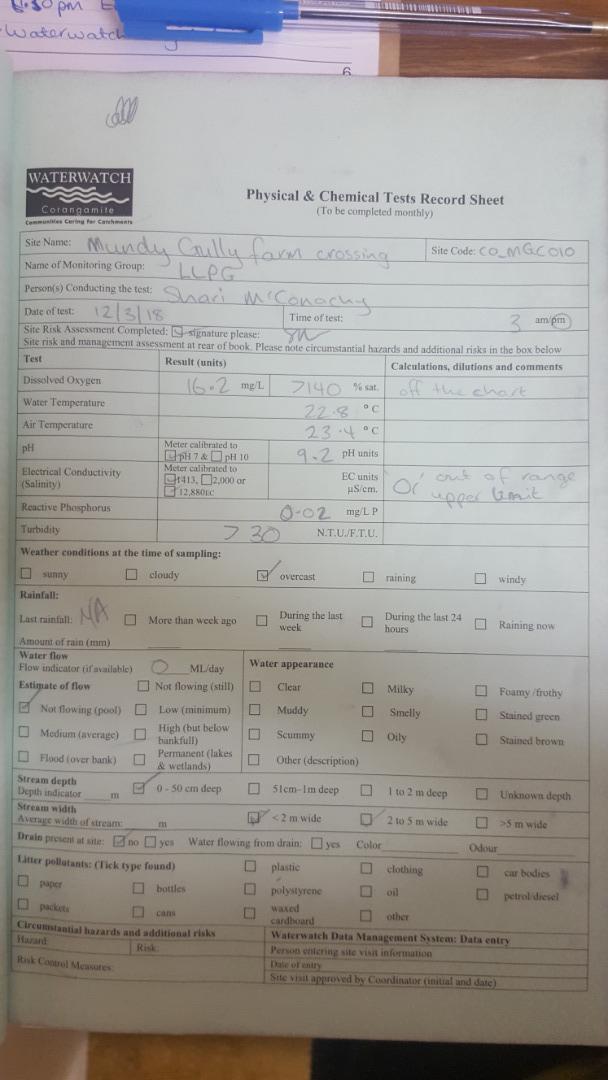 pm E
Waterwatch
WATERWATCH
Corangamite
Communities Caring for Catchments
Physical & Chemical Tests Record Sheet
(To be completed monthly)
Site Name: Mundy Gully farm crossing Site Code: CO_MGC010
Name of Monitoring Group: LLPG
Person(s) Conducting the test: Shari McConachy
Date of test: 12/3/18 Time of test: 3 am/pm
Site Risk Assessment Completed: signature please:
Site risk and management assessment at rear of book. Please note circumstantial hazards and additional risks in the box below
Test Result (units) Calculations, dilutions and comments
Dissolved Oxygen 16.2 mg/L >140 % sat. off the chart
Water Temperature 22.8 °C
Air Temperature 23.4 °C
pH Meter calibrated to pH 7 & pH 10 9.2 pH units
Electrical Conductivity (Salinity) Meter calibrated to 1413, 2,000 or 12,880EC EC units µS/cm. out of range
upper limit
Reactive Phosphorus 0.02 mg/L P
Turbidity >30 N.T.U./F.T.U.
Weather conditions at the time of sampling:
sunny cloudy overcast raining windy
Rainfall:
Last rainfall: NA More than week ago During the last week During the last 24 hours Raining now
Amount of rain (mm)
Water flow
Flow indicator (if available) 0 ML/day Water appearance
Estimate of flow Not flowing (still) Clear Milky Foamy/frothy
Not flowing (pool) Low (minimum) Muddy Smelly Stained green
Medium (average) High (but below bankfull) Scummy Oily Stained brown
Flood (over bank) Permanent (lakes & wetlands) Other (description)
Stream depth
Depth indicator m 0 - 50 cm deep 51cm-1m deep 1 to 2 m deep Unknown depth
Stream width
Average width of stream: m < 2 m wide 2 to 5 m wide >5 m wide
Drain present at site: no yes Water flowing from drain: yes Color Odour
Litter pollutants: (Tick type found) plastic clothing car bodies
paper bottles polystyrene oil petrol/diesel
packets cans waxed cardboard other
Circumstantial hazards and additional risks Waterwatch Data Management System: Data entry
Hazard: Risk: Person entering site visit information
Risk Control Measures: Date of entry
Site visit approved by Coordinator (initial and date)